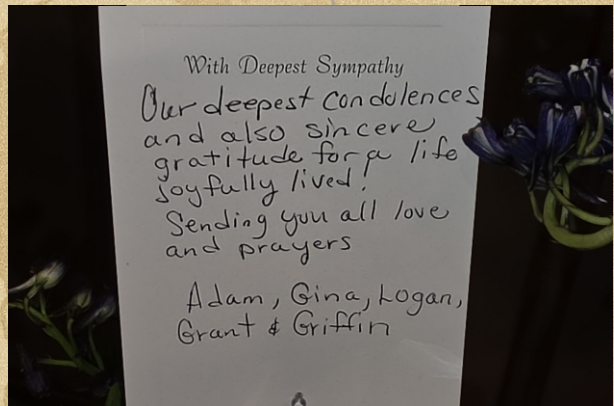 With Deepest Sympathy
Our deepest condolences
and also sincere
gratitude for a life
joyfully lived!
Sending you all love
and prayers
Adam, Gina, Logan,
Grant & Griffin